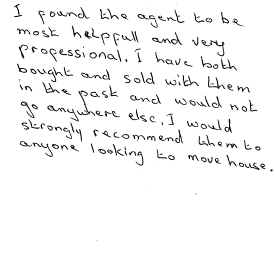 I found the agent to be
most helpfull and very
professional. I have both
bought and sold with them
in the past and would not
go anywhere else. I would
strongly recommend them to
anyone looking to move house.